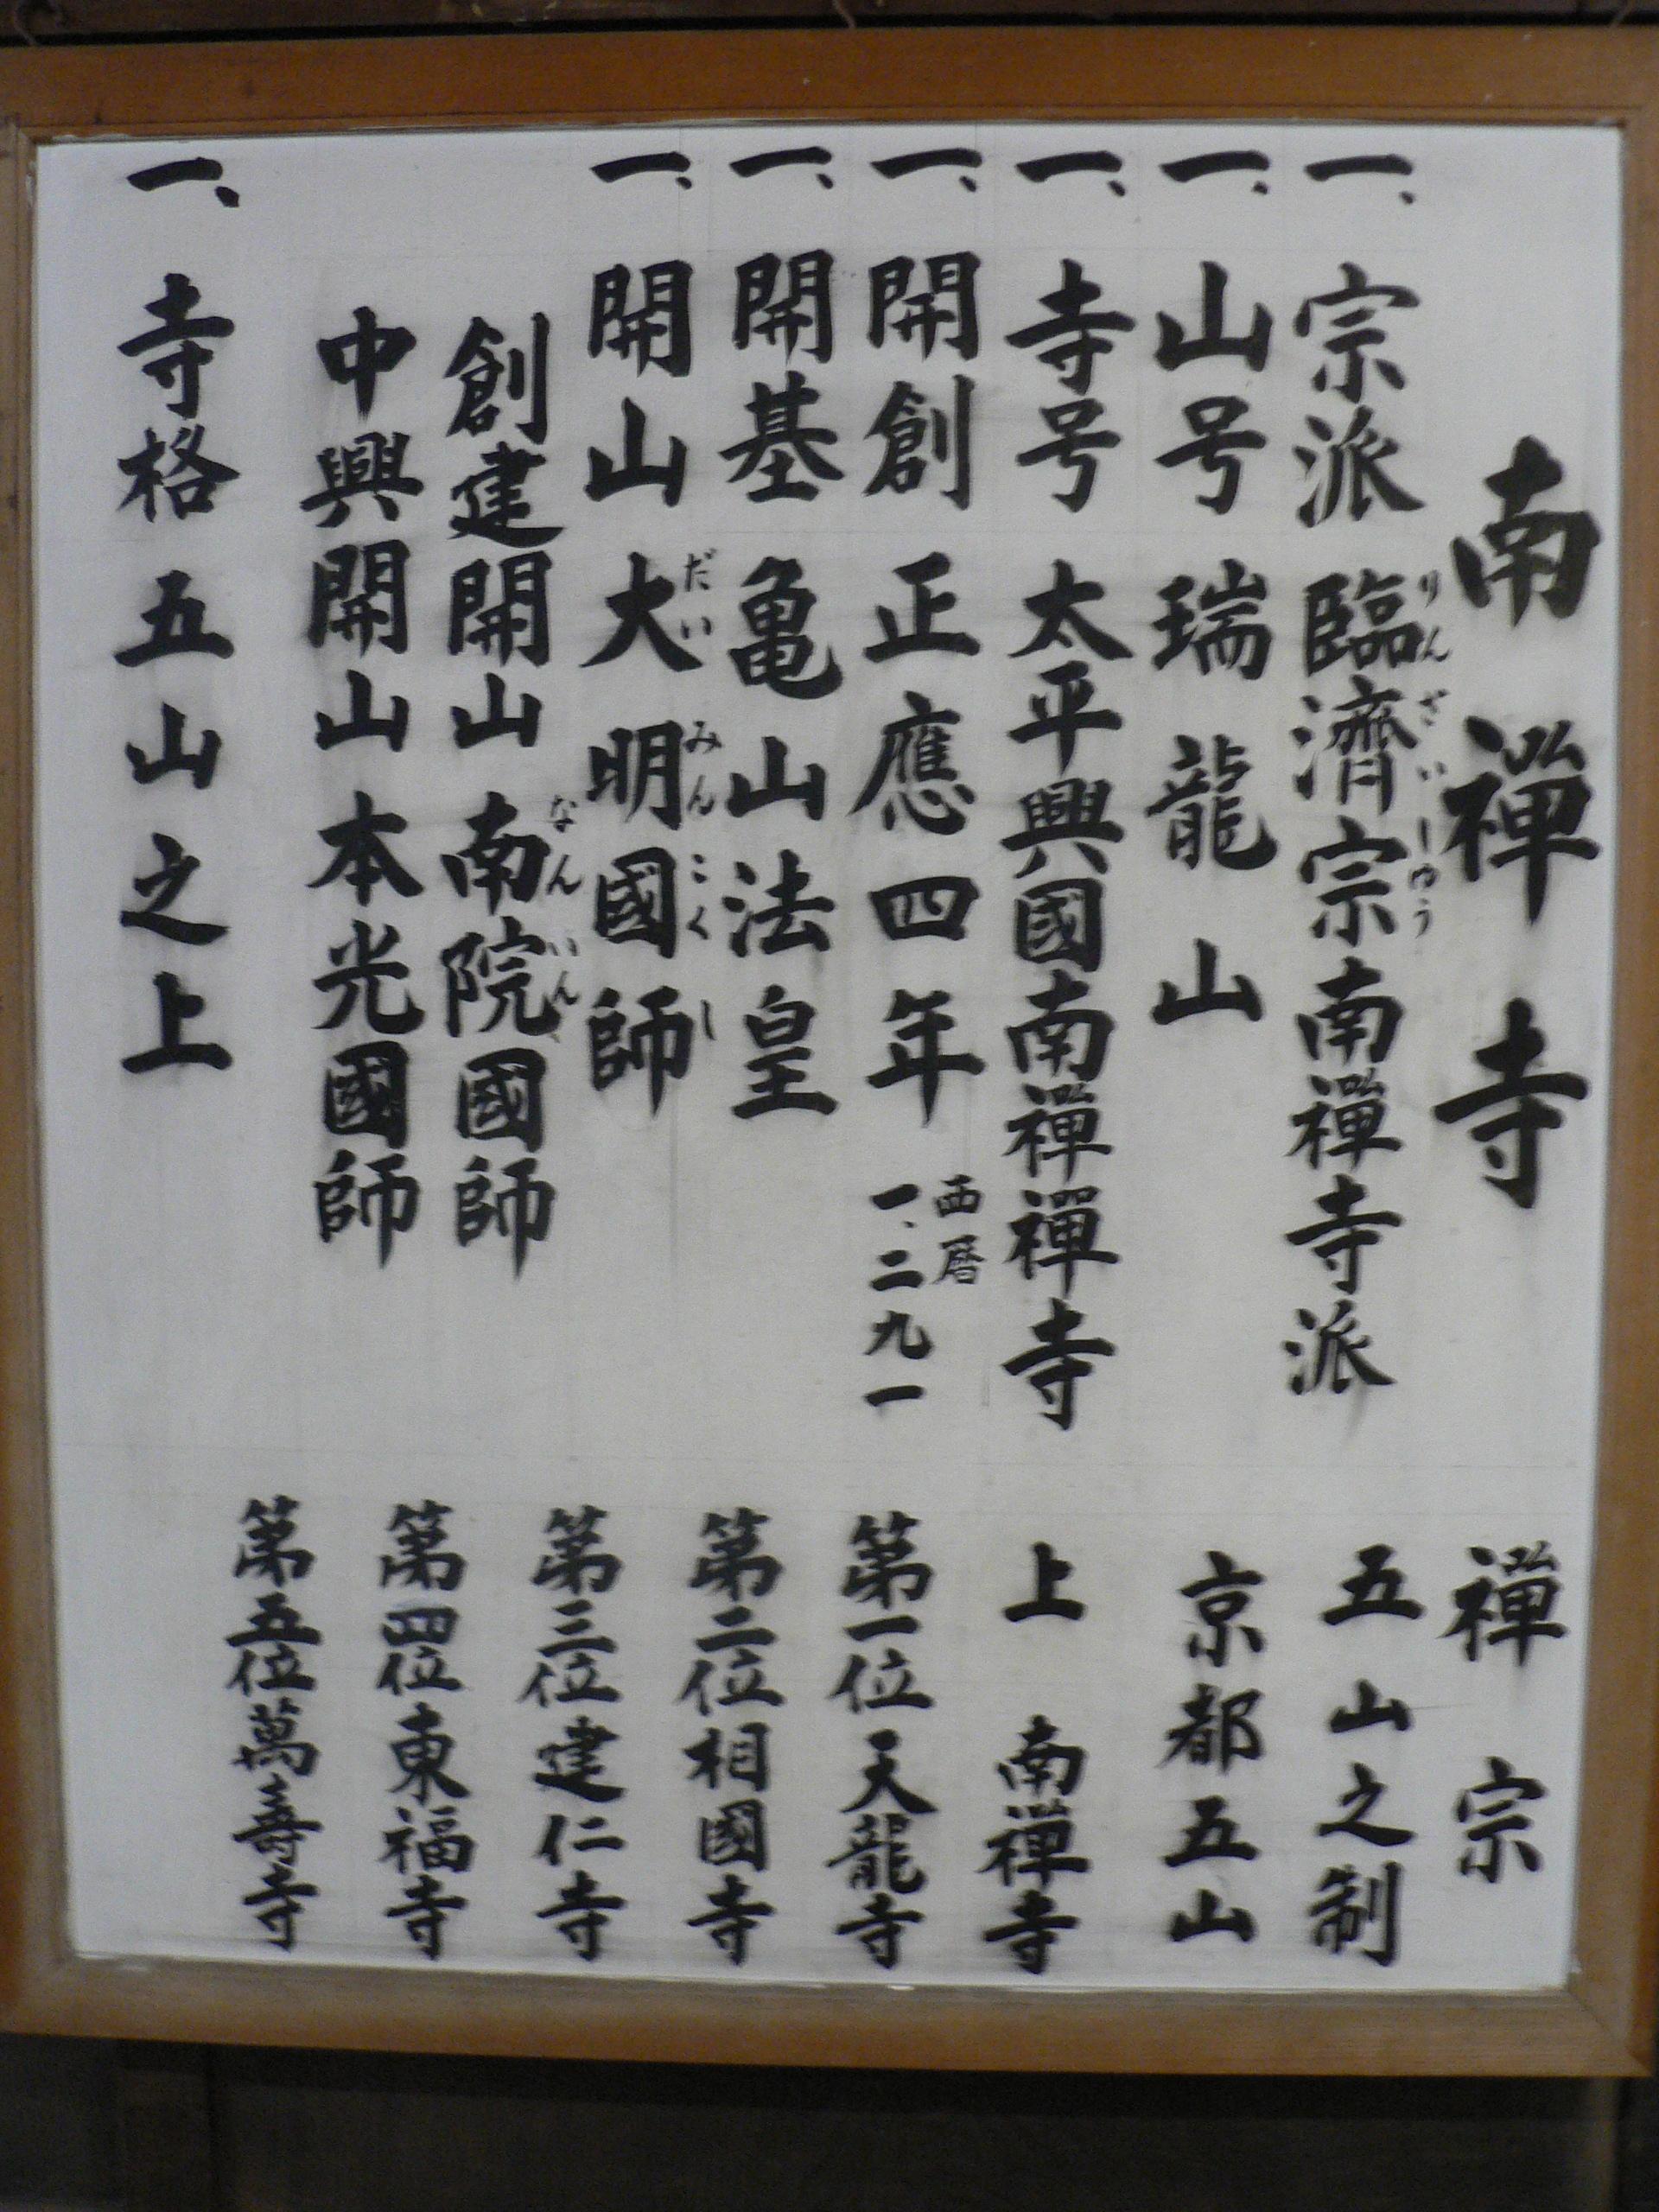 南禪寺
一、宗派 臨濟宗南禪寺派
りんざいしゅう
一、山号 瑞龍山
一、寺号 太平興國南禪禪寺
一、開創 正應四年 西暦
一、二九一
一、開基 亀山法皇
一、開山 大明國師
だいみんこくし
創建開山 南院國師
なんいん
中興開山 本光國師
一、寺格 五山之上
禪宗
五山之制
京都五山
上 南禪寺
第一位 天龍寺
第二位 相國寺
第三位 建仁寺
第四位 東福寺
第五位 萬壽寺